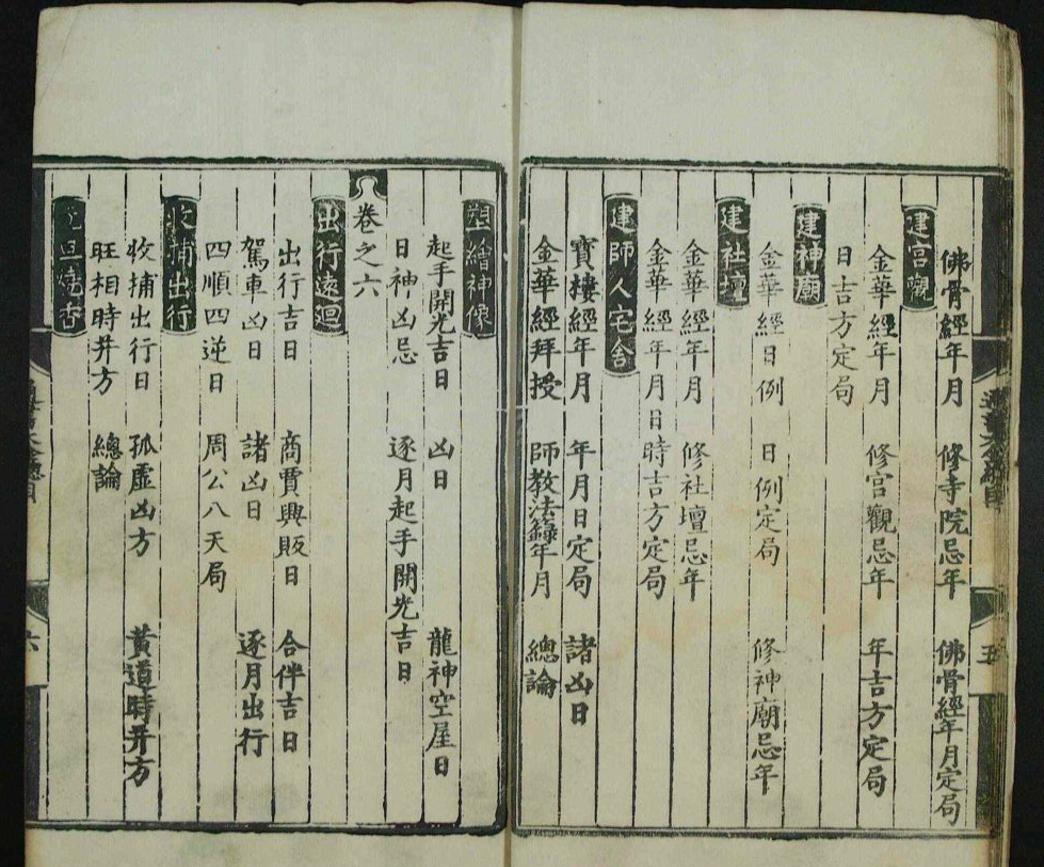 佛骨經年月 修寺院忌年 佛骨經年月定局
建宮觀
金華經年月 修宮觀忌年 年吉方定局
日吉方定局
建神廟
金華經日例 日例定局 修神廟忌年
建社壇
金華經年月 修社壇忌年
金華經年月日時吉方定局
建師人宅舍
寶樓經年月 年月日定局 諸凶日
金華經拜授 師教法籙年月 總論
五
塑繪神像
起手開光吉日 凶日 龍神空屋日
日神凶忌 逐月起手開光吉日
卷之六
出行遠迴
出行吉日 商賈興販日 合伴吉日
駕車凶日 諸凶日 逐月出行
四順四逆日 周公八天局
收捕出行
收捕出行日 孤虛凶方 黃道時井方
旺相時井方 總論
旦燒香
六